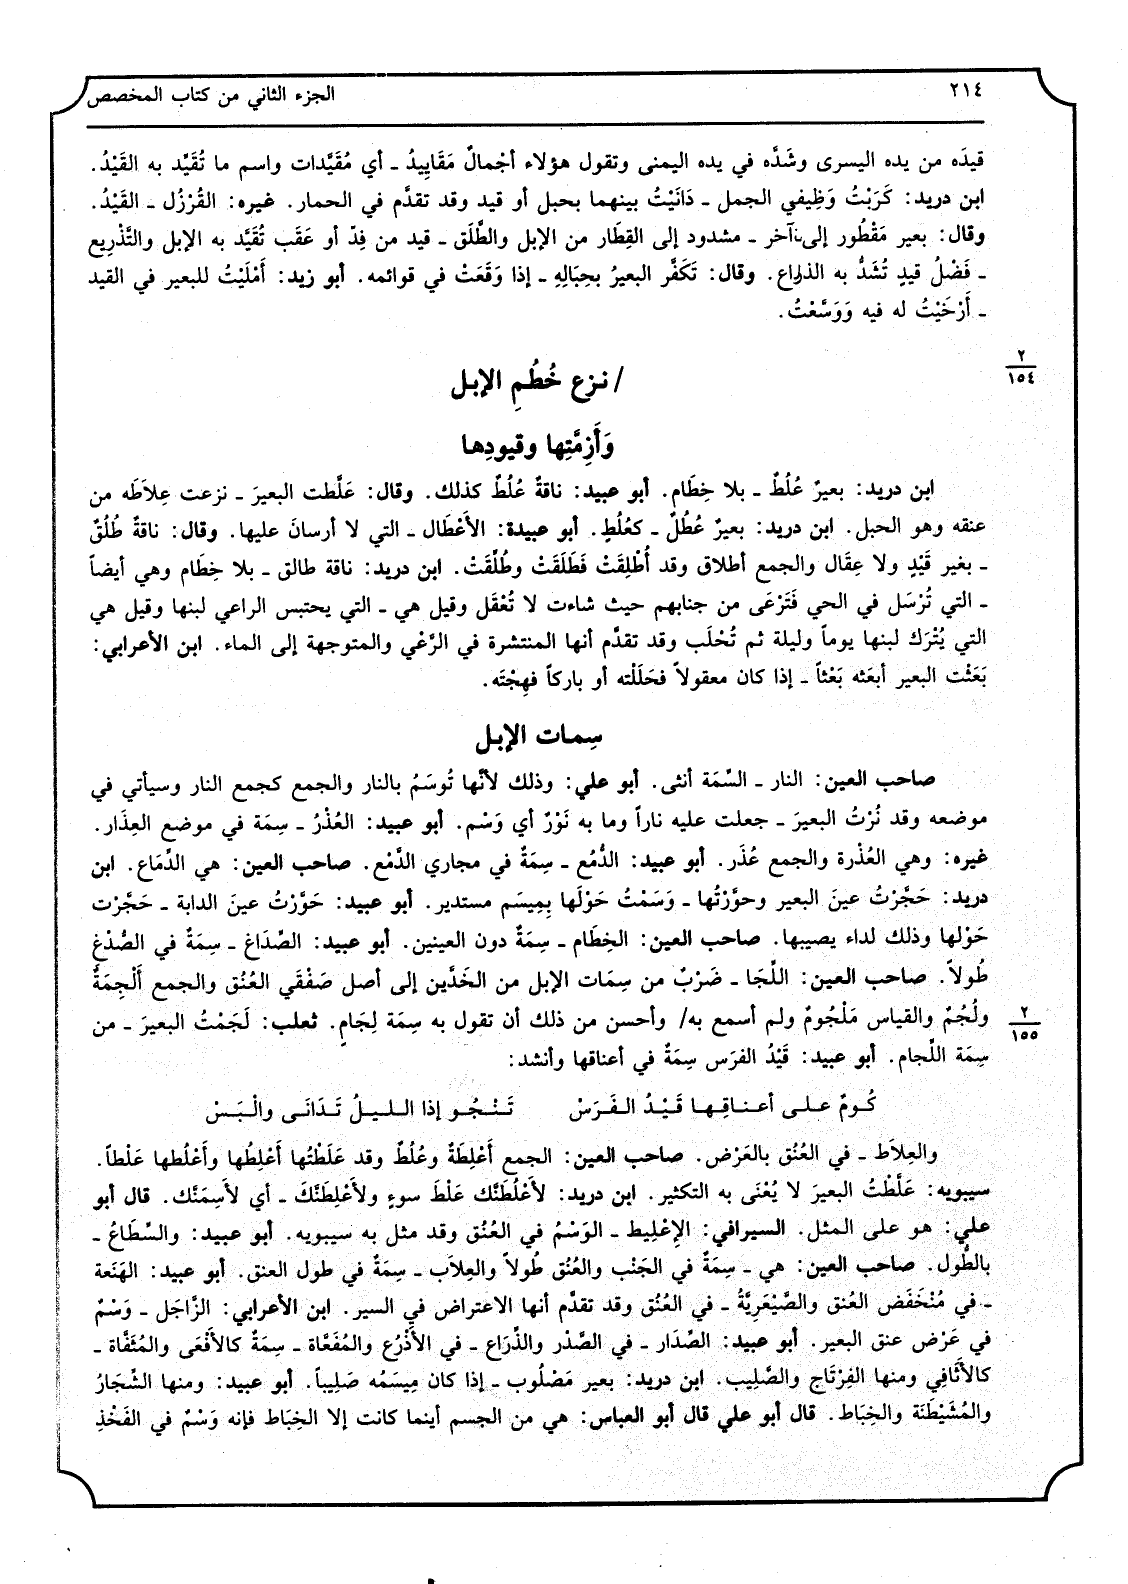 ٢١٤
الجزء الثاني من كتاب المخصص
قيدَه من يده اليسرى وشَدَّه في يده اليمنى وتقول هؤلاء أجْمالٌ مَقَايِيدُ ـ أي مُقَيَّدات واسم ما تُقَيَّد به القَيْدُ.
ابن دريد: كَرَبْتُ وَظِيفي الجمل ـ دَانَيْتُ بينهما بحبل أو قيد وقد تقدَّم في الحمار. غيره: القُرْزُل ـ القَيْدُ.
وقال: بعير مَقْطُور إلى آخر ـ مشدود إلى القِطَار من الإبل والطَّلَق ـ قيد من قِدّ أو عَقَب تُقَيَّد به الإبل والتَّذْرِيع
ـ فَضْلُ قيدٍ تُشَدُّ به الذراع. وقال: تَكَفَّر البعيرُ بحِبَالِهِ ـ إذا وَقَعَتْ في قوائمه. أبو زيد: أَمْلَيْتُ للبعير في القيد
ـ أَرْخَيْتُ له فيه وَوَسَّعْتُ.
/ نزع خُطُمِ الإبل
٢
١٥٤
وَأَزِمَّتِها وقيودِها
ابن دريد: بعيرٌ عُلُطٌ ـ بلا خِطَام. أبو عبيد: ناقةٌ عُلُطٌ كذلك. وقال: عَلَّطت البعيرَ ـ نزعت عِلاَطَه من
عنقه وهو الحبل. ابن دريد: بعيرٌ عُطُلٌ ـ كعُلُطٍ. أبو عبيدة: الأَعْطَال ـ التي لا أرسانَ عليها. وقال: ناقةٌ طُلُقٌ
ـ بغير قَيْدٍ ولا عِقَال والجمع أطلاق وقد أُطْلِقَتْ فَطَلَقَتْ وطُلِّقَتْ. ابن دريد: ناقة طالق ـ بلا خِطَام وهي أيضاً
ـ التي تُرْسَل في الحي فَتَرْعَى من جنابهم حيث شاءت لا تُعْقَل وقيل هي ـ التي يحتبس الراعي لبنها وقيل هي
التي يُتْرَك لبنها يوماً وليلة ثم تُحْلَب وقد تقدَّم أنها المنتشرة في الرَّعْي والمتوجهة إلى الماء. ابن الأعرابي:
بَعَثْت البعير أبعَثه بَعْثاً ـ إذا كان معقولاً فحَلَلْته أو باركاً فهِجْتَه.
سِمات الإبل
صاحب العين: النار ـ السِّمَة أنثى. أبو علي: وذلك لأنَّها تُوسَمُ بالنار والجمع كجمع النار وسيأتي في
موضعه وقد نُرْتُ البعيرَ ـ جعلت عليه ناراً وما به نَوْرٌ أي وَسْم. أبو عبيد: العُذْرُ ـ سِمَة في موضع العِذَار.
غيره: وهي العُذْرة والجمع عُذَر. أبو عبيد: الدُّمُع ـ سِمَةٌ في مجاري الدَّمْع. صاحب العين: هي الدِّمَاع. ابن
دريد: حَجَّرْتُ عينَ البعير وحوَّرْتُها ـ وَسَمْتُ حَوْلَها بِمِيسَم مستدير. أبو عبيد: حَوَّرْتُ عينَ الدابة ـ حَجَّرْت
حَوْلها وذلك لداء يصيبها. صاحب العين: الخِطَام ـ سِمَةٌ دون العينين. أبو عبيد: الصِّدَاغ ـ سِمَةٌ في الصُّدْغ
طُولاً. صاحب العين: اللِّجَا ـ ضَرْبٌ من سِمَات الإبل من الخَدَّين إلى أصل صَفْقَي العُنُق والجمع أَلْجِمَةٌ
ولُجُمٌ والقياس مَلْجُومٌ ولم أسمع به/ وأحسن من ذلك أن تقول به سِمَة لِجَامٍ. ثعلب: لَجَمْتُ البعيرَ ـ من
٢
١٥٥
سِمَة اللِّجام. أبو عبيد: قَيْدُ الفرَس سِمَةٌ في أعناقها وأنشد:
كُومٌ على أعناقِها قَيْدُ الفَرَسْ   تَنْجُو إذا الليلُ تَدَانَى والْبَسْ
والعِلاَط ـ في العُنُق بالعَرْض. صاحب العين: الجمع أَعْلِطَةٌ وعُلُطٌ وقد عَلَطْتُها أَعْلِطُها وأَعْلُطها عَلْطاً.
سيبويه: عَلَّطْتُ البعيرَ لا يُعْنَى به التكثير. ابن دريد: لأعْلُطَنَّك عَلْطَ سوءٍ ولأَعْلِطَنَّكَ ـ أي لأسِمَنَّك. قال أبو
علي: هو على المثل. السيرافي: الإعْلِيط ـ الوَسْمُ في العُنُق وقد مثل به سيبويه. أبو عبيد: والسِّطَاعُ ـ
بالطُول. صاحب العين: هي ـ سِمَةٌ في الجَنْب والعُنُق طُولاً والعِلاَب ـ سِمَةٌ في طول العنق. أبو عبيد: الهَنَعة
ـ في مُنْخَفَض العُنق والصَّيْعَرِيَّةُ ـ في العُنُق وقد تقدَّم أنها الاعتراض في السير. ابن الأعرابي: الزَّاجَل ـ وَسْمٌ
في عَرْض عنق البعير. أبو عبيد: الصِّدَار ـ في الصَّدْر والذِّرَاع ـ في الأَذْرُع والمُفَعَّاة ـ سِمَةٌ كالأَفْعَى والمُثَفَّاة ـ
كالأَثَافِي ومنها الفِرْتَاج والصَّلِيب. ابن دريد: بعير مَصْلُوب ـ إذا كان مِيسَمُه صَلِيباً. أبو عبيد: ومنها الشِّجَارُ
والمُشَيْطَنَة والخِبَاط. قال أبو علي قال أبو العباس: هي من الجسم أينما كانت إلا الخِبَاط فإنه وَسْمٌ في الفَخْذِ